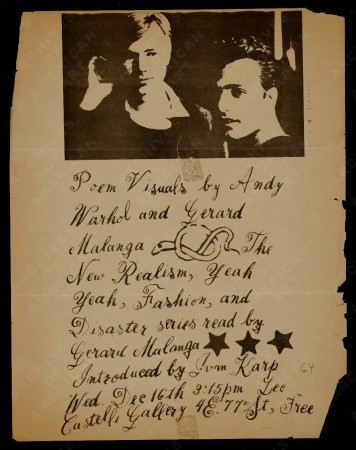 Poem Visuals by Andy
Warhol and Gerard
Malanga The
New Realism, Yeah
Yeah, Fashion, and
Disaster series read by
Gerard Malanga
Introduced by Ivan Karp
64
Wed. Dec 16th 3:15pm Leo
Castelli Gallery 4E. 77th St, Free